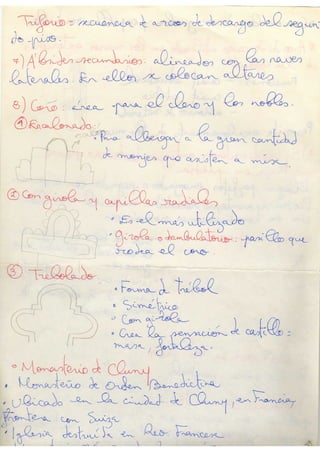 Triforio = secuencia de arcos de descargo del segun
do piso.
7) Ábsides secundarios: alineados con las naves
laterales. En ellos se colocan altares
8) Coro: área para el clero y los nobles.
① Escalonado:
• Para albergar a la gran cantidad
de monjes que asisten a misa
② Con girola y capillas radiales
• Es el más utilizado
• Girola o deambulatorio: pasillo que
rodea el coro
③ Trebolado
• Forma de trébol
• Simétrico
• Con girola
• Crea la sensación de castillo =
masa, fortaleza.
• Monasterio de Cluny
• Monasterio de Orden Benedictina
• Ubicado en la ciudad de Cluny, en Francia,
frontera con Suiza
• Iglesia destruida en Rev. Francesa